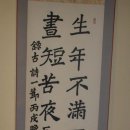 生年不滿
晝短苦夜
錄古詩一節丙戌